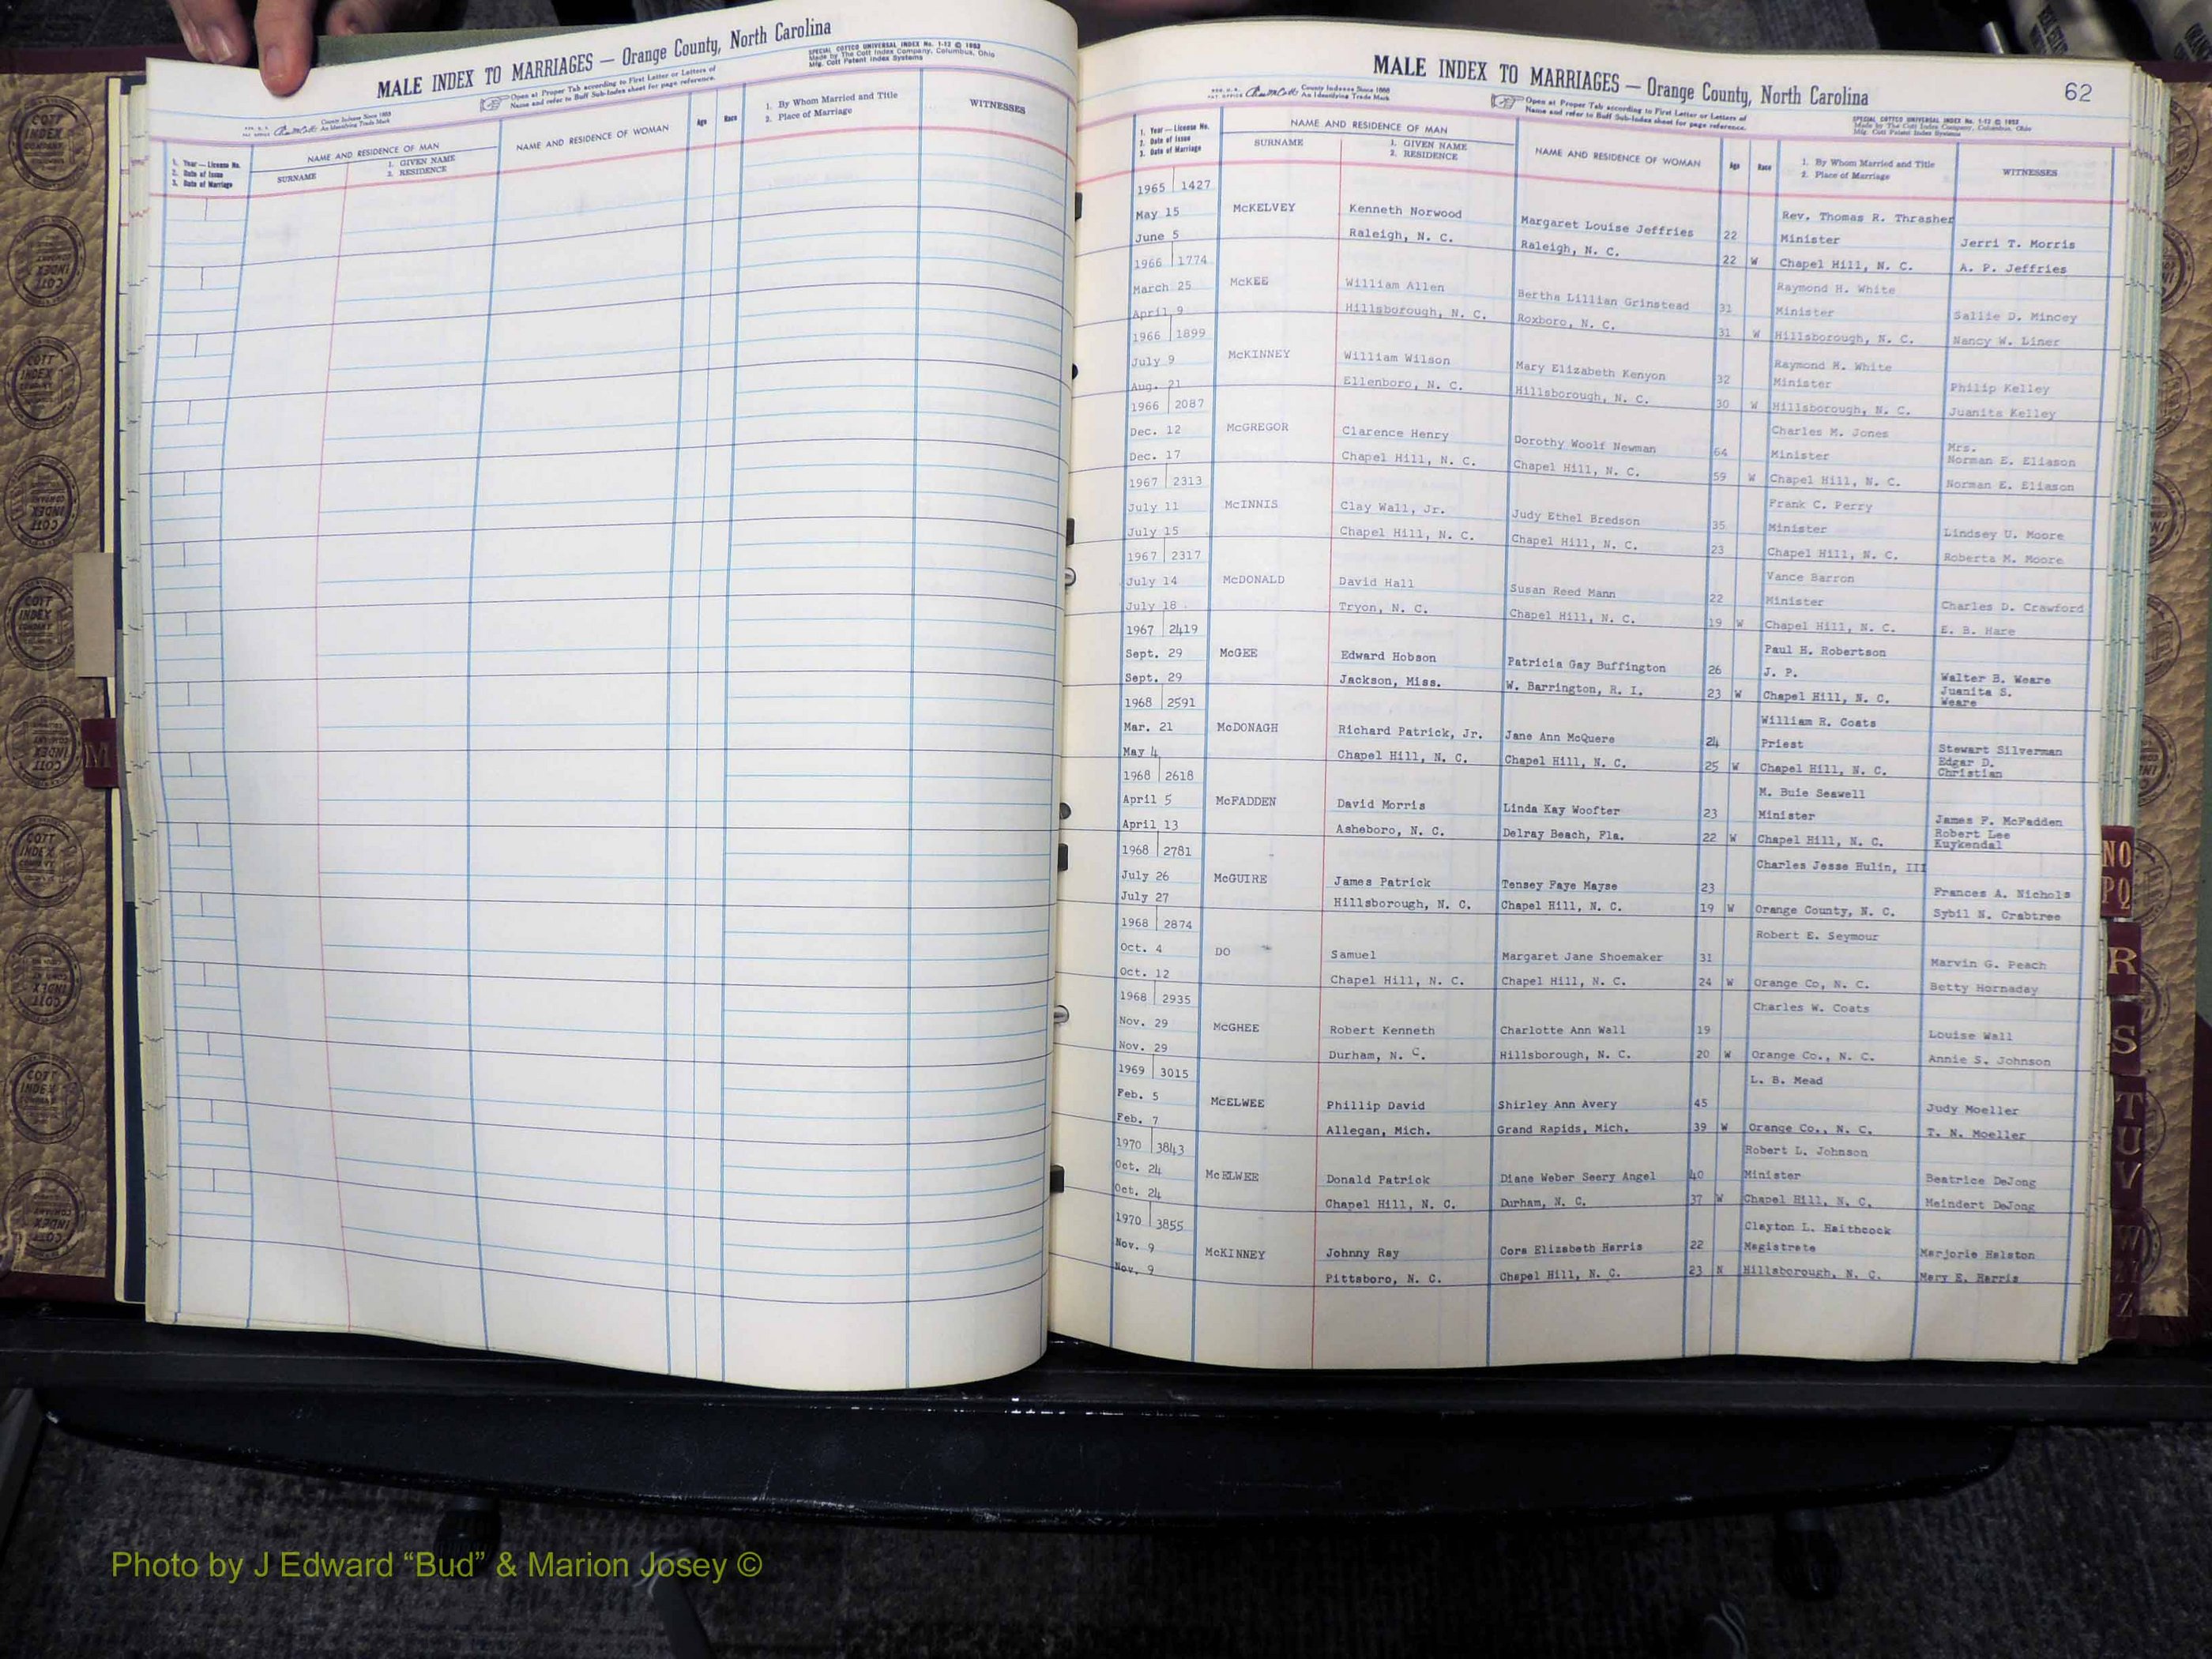 MALE INDEX TO MARRIAGES — Orange County, North Carolina
SPECIAL COTTCO UNIVERSAL INDEX No. 1-12 © 1952
Made by The Cott Index Company, Columbus, Ohio
Mfg. Cott Patent Index Systems
Open at Proper Tab according to First Letter or Letters of
Name and refer to Buff Sub-Index sheet for page reference.
County Indexes Since 1888
An Identifying Trade Mark
1. Year — License No.
2. Date of Issue
3. Date of Marriage
NAME AND RESIDENCE OF MAN
SURNAME
1. GIVEN NAME
2. RESIDENCE
NAME AND RESIDENCE OF WOMAN
Age
Race
1. By Whom Married and Title
2. Place of Marriage
WITNESSES
MALE INDEX TO MARRIAGES — Orange County, North Carolina
62
County Indexes Since 1888
An Identifying Trade Mark
Open at Proper Tab according to First Letter or Letters of
Name and refer to Buff Sub-Index sheet for page reference.
SPECIAL COTTCO UNIVERSAL INDEX No. 1-12 © 1952
Made by The Cott Index Company, Columbus, Ohio
Mfg. Cott Patent Index Systems
1. Year — License No.
2. Date of Issue
3. Date of Marriage
NAME AND RESIDENCE OF MAN
SURNAME
1. GIVEN NAME
2. RESIDENCE
NAME AND RESIDENCE OF WOMAN
Age
Race
1. By Whom Married and Title
2. Place of Marriage
WITNESSES
1965 1427 Rev. Thomas R. Thrasher
May 15 McKELVEY Kenneth Norwood Margaret Louise Jeffries 22 Minister Jerri T. Morris
June 5 Raleigh, N. C. Raleigh, N. C. 22 W Chapel Hill, N. C. A. P. Jeffries
1966 1774 Raymond H. White
March 25 McKEE William Allen Bertha Lillian Grinstead 31 Minister Sallie D. Mincey
April 9 Hillsborough, N. C. Roxboro, N. C. 31 W Hillsborough, N. C. Nancy W. Liner
1966 1899 Raymond H. White
July 9 McKINNEY William Wilson Mary Elizabeth Kenyon 32 Minister Philip Kelley
Aug. 21 Ellenboro, N. C. Hillsborough, N. C. 30 W Hillsborough, N. C. Juanita Kelley
1966 2087 Charles M. Jones
Dec. 12 McGREGOR Clarence Henry Dorothy Woolf Newman 64 Minister Mrs. Norman E. Eliason
Dec. 17 Chapel Hill, N. C. Chapel Hill, N. C. 59 W Chapel Hill, N. C. Norman E. Eliason
1967 2313 Frank C. Perry
July 11 McINNIS Clay Wall, Jr. Judy Ethel Bredson 35 Minister Lindsey U. Moore
July 15 Chapel Hill, N. C. Chapel Hill, N. C. 23 Chapel Hill, N. C. Roberta M. Moore
1967 2317 Vance Barron
July 14 McDONALD David Hall Susan Reed Mann 22 Minister Charles D. Crawford
July 18 Tryon, N. C. Chapel Hill, N. C. 19 W Chapel Hill, N. C. E. B. Hare
1967 2419 Paul H. Robertson
Sept. 29 McGEE Edward Hobson Patricia Gay Buffington 26 J. P. Walter B. Weare
Sept. 29 Jackson, Miss. W. Barrington, R. I. 23 W Chapel Hill, N. C. Juanita S. Weare
1968 2591 William R. Coats
Mar. 21 McDONAGH Richard Patrick, Jr. Jane Ann McQuere 24 Priest Stewart Silverman
May 4 Chapel Hill, N. C. Chapel Hill, N. C. 25 W Chapel Hill, N. C. Edgar D. Christian
1968 2618 M. Buie Seawell
April 5 McFADDEN David Morris Linda Kay Woofter 23 Minister James F. McFadden
April 13 Asheboro, N. C. Delray Beach, Fla. 22 W Chapel Hill, N. C. Robert Lee Kuykendal
1968 2781 Charles Jesse Hulin, III
July 26 McGUIRE James Patrick Tensey Faye Mayse 23 Frances A. Nichols
July 27 Hillsborough, N. C. Chapel Hill, N. C. 19 W Orange County, N. C. Sybil N. Crabtree
1968 2874 Robert E. Seymour
Oct. 4 DO Samuel Margaret Jane Shoemaker 31 Marvin G. Peach
Oct. 12 Chapel Hill, N. C. Chapel Hill, N. C. 24 W Orange Co, N. C. Betty Hornaday
1968 2935 Charles W. Coats
Nov. 29 McGHEE Robert Kenneth Charlotte Ann Wall 19 Louise Wall
Nov. 29 Durham, N. C. Hillsborough, N. C. 20 W Orange Co., N. C. Annie S. Johnson
1969 3015 L. B. Mead
Feb. 5 McELWEE Phillip David Shirley Ann Avery 45 Judy Moeller
Feb. 7 Allegan, Mich. Grand Rapids, Mich. 39 W Orange Co., N. C. T. N. Moeller
1970 3843 Robert L. Johnson
Oct. 24 McELWEE Donald Patrick Diane Weber Seery Angel 40 Minister Beatrice DeJong
Oct. 24 Chapel Hill, N. C. Durham, N. C. 37 W Chapel Hill, N. C. Meindert DeJong
1970 3855 Clayton L. Haithcock
Nov. 9 McKINNEY Johnny Ray Cora Elizabeth Harris 22 Magistrate Marjorie Halston
Nov. 9 Pittsboro, N. C. Chapel Hill, N. C. 23 N Hillsborough, N. C. Mary E. Harris
M
NO
PQ
R
S
T
U
V
Z
COTT
INDEX
COMPANY
Photo by J Edward “Bud” & Marion Josey ©